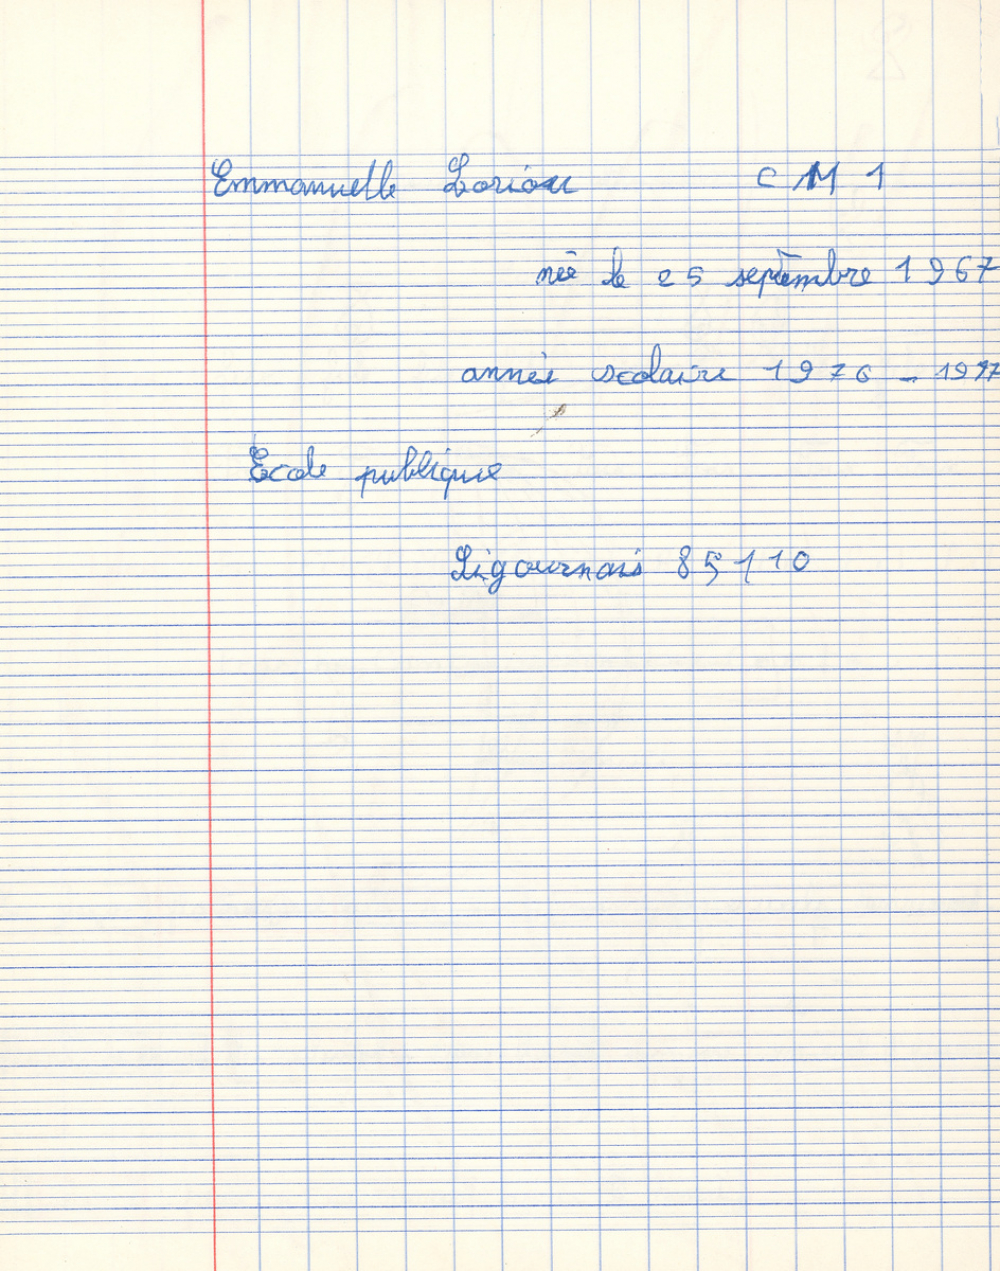 Emmanuelle Loriou CM1
née le 25 septembre 1967
année scolaire 1976 - 1977
École publique
Sigournais 85110